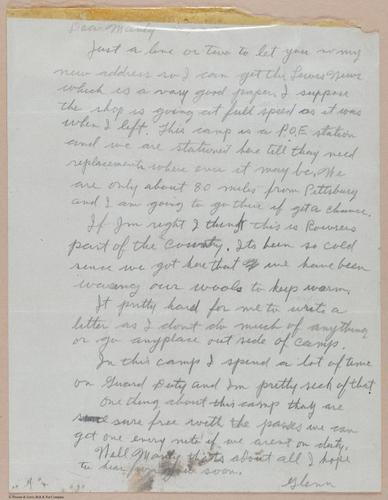 Dear Manly
Just a line or two to let you no my
new address so I can get the News
which is a very good paper. I suppose
the shop is going at full speed as it was
when I left. This camp is a P.O.E station
and we are stationed here till they need
replacements where ever it may be. We
are only about 80 miles from Pittsburg
and I am going to go there if get a chance.
If I'm right I think this is Rowsers
part of the Country. Its been so cold
since we got here that we have been
wearing our wools to keep warm.
It pretty hard for me to write a
letter as I dont do much of anything
or go anyplace out side of camp.
In this camp I spend a lot of time
on Guard Duty and I'm pretty sick of that.
One thing about this camp they are
sure free with the passes we can
get one every nite if we arent on duty.
Well Manly thats about all I hope
to hear from you soon.
Glenn